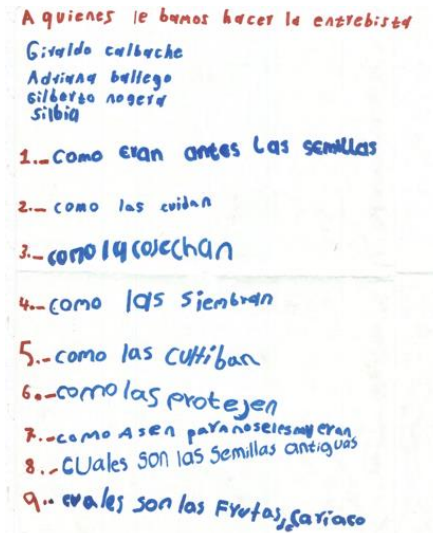 A quienes le bamos hacer la entrebista
Giraldo calbache
Adriana ballego
Gilberto nogera
Silbia
1.- Como eran antes las semillas
2.- como las cuidan
3.- como la cosechan
4.- como las siembran
5.- como las cultiban
6.- como las protejen
7.- como Asen para no seles mueran
8.- CUales son las semillas antiguas
9.- cuales son las Frutas, cariaco